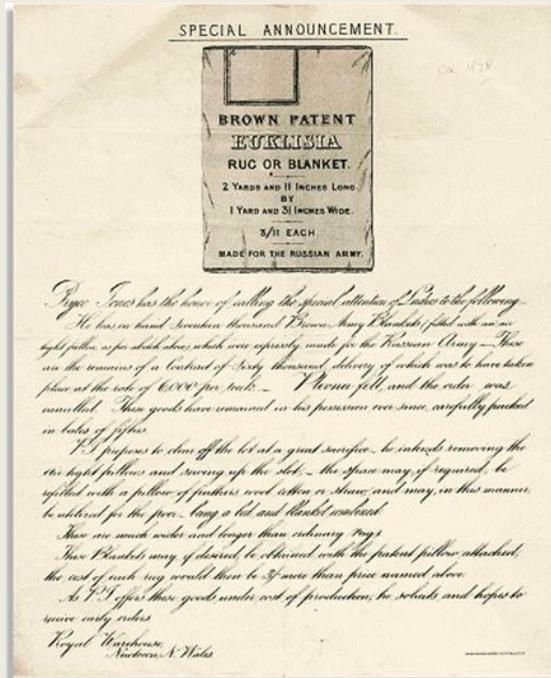 SPECIAL ANNOUNCEMENT.
ca 1878
BROWN PATENT
EUKLISIA
RUG OR BLANKET.
2 YARDS AND 11 INCHES LONG
BY
1 YARD AND 31 INCHES WIDE.
3/11 EACH.
MADE FOR THE RUSSIAN ARMY.
Pryce Jones has the honor of calling the special attention of Ladies to the following
He has on hand Seventeen thousand Brown Army Blankets (fitted with an air
tight pillow as per sketch above) which were expressly made for the Russian Army — These
are the remains of a Contract of Sixty thousand, delivery of which was to have taken
place at the rate of 6,000 per week — Plevna fell, and the order was
cancelled. These goods have remained in his possession ever since, carefully packed
in bales of fifties.
P.J. proposes to clear off the lot at a great sacrifice — he intends removing the
air tight pillows and sewing up the slot, — the space may, if required, be
refilled with a pillow of feathers wool cotton or straw, and may, in this manner,
be utilized for the poor — being a bed and blanket combined
These are much wider and longer than ordinary rugs
These Blankets may, if desired, be obtained with the patent pillow attached;
the cost of each rug would then be more than price named above.
As P.J. offers these goods under cost of production, he solicits and hopes to
receive early orders
Royal Warehouse,
Newtown, N. Wales.